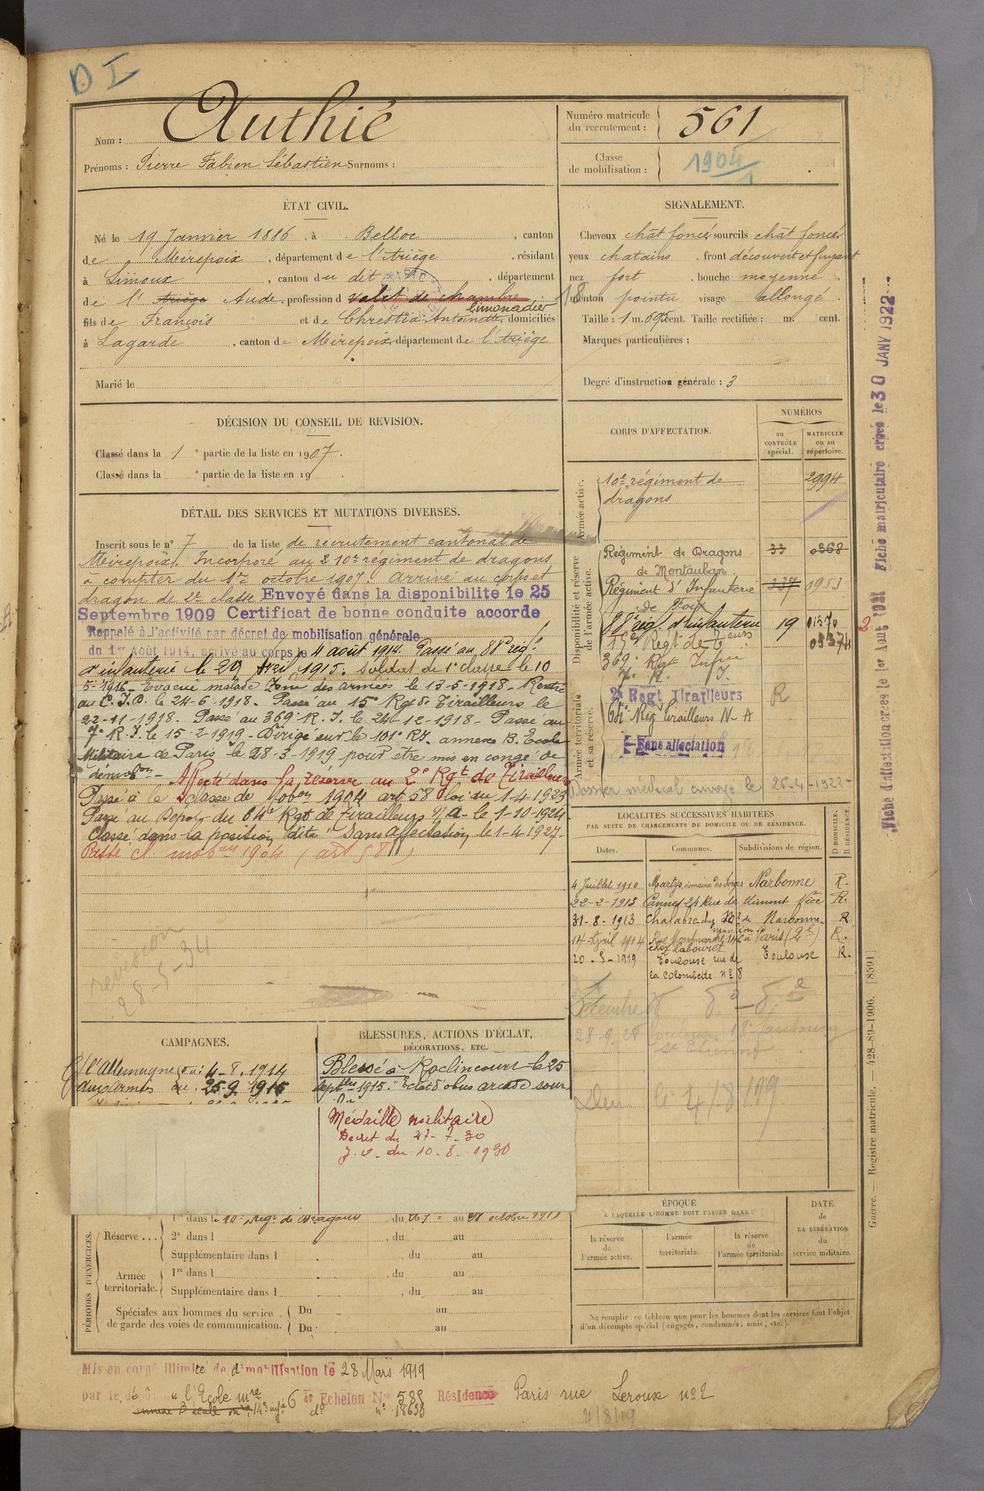 D I
Nom : Authié
Prénoms : Pierre Fabien Sébastien Surnoms :
Numéro matricule du recrutement : 561
Classe de mobilisation : 1904
ÉTAT CIVIL.
Né le 19 Janvier 1886, à Belloc, canton
de Mirepoix, département de l'Ariège, résidant
à Limoux, canton du dit, département
de l' Ariège Aude, profession d valet de chambre
limonadier
fils de François et de Chrestia Antoinette domiciliés
à Lagarde, canton de Mirepoix département de l'Ariège
Marié le
SIGNALEMENT.
Cheveux chât foncé sourcils chât foncé
yeux chatains, front découvert et fuyant
nez fort, bouche moyenne
menton pointu visage allongé
Taille : 1 m. cent. Taille rectifiée : m. cent.
Marques particulières :
Degré d'instruction générale : 3
DÉCISION DU CONSEIL DE REVISION.
Classé dans la 1e partie de la liste en 1907.
Classé dans la e partie de la liste en 19
DÉTAIL DES SERVICES ET MUTATIONS DIVERSES.
Inscrit sous le no 7 de la liste de recrutement cantonal de
Mirepoix. Incorporé au 10e régiment de dragons
à compter du 1er octobre 1907. Arrivé au corps et
dragon de 2e classe Envoyé dans la disponibilité le 25
Septembre 1909 Certificat de bonne conduite accordé
Rappelé à l'activité par décret de mobilisation générale
du 1er Août 1914, arrivé au corps le 4 août 1914. Passé au 88e rég!
d'infanterie le 29 1915. Soldat de 1e classe le 10
5-1916 - Evacué malade Zone des armées le 13-5-1918 - Rentré
au C.I.D. le 24-6-1918. Passé au 15 Rgt de Tirailleurs le
22-11-1918. Passé au 369 R.I. le 24-12-1918 - Passé au
7e R.I. le 15-2-1919 - Dirigé sur le 101e RI. annexe B. Ecole
Militaire de Paris le 28-3-1919 pour être mis en congé de
démobon - Affecté dans la réserve au 2e Rgt de Tirailleurs
Passé à la classe de mobon 1904 art 58 loi du 1-4 1923
Passé au Dépôt du 64e Rgt de Tirailleurs N A - le 1-10-1924
Classé dans la position dite "Sans affectation" le 1-4-1927-
Passé Cl mobon 1904 (art 58)
CORPS D'AFFECTATION.
NUMÉROS
au CONTRÔLE spécial.
MATRICULE ou au répertoire.
Armée active.
10e régiment de dragons 2994
Disponibilité et réserve de l'armée active.
Régiment de Dragons 33 0368
de Montauban
Régiment d'Infanterie 337 0953
de Foix
88e rég d'infanterie 19
15e Regt de Teurs
369e Rgt Infrie
7e R. I.
Armée territoriale et sa réserve.
2e Regt Tirailleurs R
64e Rég Tirailleurs N-A
Sans affectation
Dossier médical envoyé le 28-4-1922-
LOCALITÉS SUCCESSIVES HABITÉES
PAR SUITE DE CHANGEMENTS DE DOMICILE OU DE RÉSIDENCE.
Dates. Communes. Subdivisions de région. D DOMICILE. R RÉSIDENCE.
4 Juillet 1910 Martys domaine des Forges Narbonne R.
22-2-1913 Cannes 24 Rue de Nice R.
31-8-1913 Chalabre Narbonne R
14 Avril 1914 Rue Montmartre 146 à Paris (2e) R.
chez Labouret
20-5-1919 Toulouse rue de Toulouse R.
la Colombette no 8
CAMPAGNES.
C/ l'Allemagne du 4-8-1914
aux armées du 25 9 1915
BLESSURES, ACTIONS D'ÉCLAT,
DÉCORATIONS, ETC.
Blessé à Roclincourt le 25
septbre 1915. Eclat d'obus arcade sour
Médaille militaire
Décret du 27-7-30
J.O. du 10-8-1930
PÉRIODES D'EXERCICES.
Réserve ... 1re dans l 10e Régt de Dragons du au octobre 191
2e dans l , du au
Supplémentaire dans l , du au
Armée territoriale. 1re dans l du au
Supplémentaire dans l , du au
Spéciales aux hommes du service de garde des voies de communication. Du au
Du au
ÉPOQUE
À LAQUELLE L'HOMME DOIT PASSER DANS
la réserve de l'armée active.
l'armée territoriale.
la réserve de l'armée territoriale
DATE de LA LIBÉRATION du service militaire.
Ne remplir ce tableau que pour les hommes dont les services font l'objet
d'un décompte spécial (engagés, condamnés, omis, etc.).
Mis en congé illimité de démobilisation le 28 Mars 1919
par le l'Ecole mre 6e Echelon No 588 Résidence Paris rue Leroux no 2
Fiche d'affectation créée le 1er Août 1921 Fiche matriculaire créée le 30 JANV 1922
Guerre. — Registre matricule. — 428-89-1906. [8591]